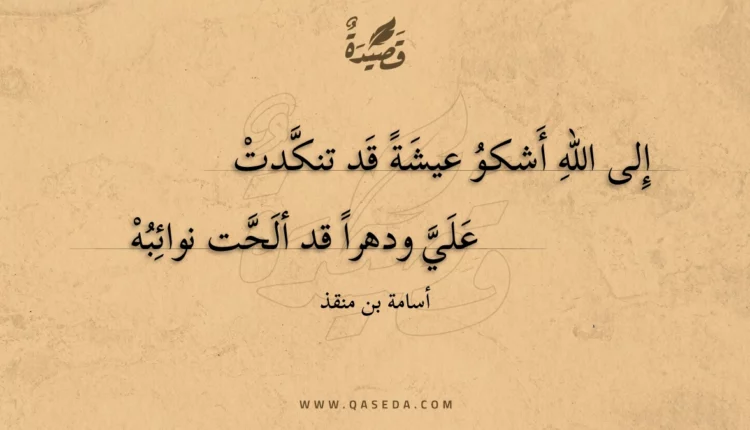 قَصِيدَةٌ
إِلى اللهِ أَشكوُ عيشَةً قَد تنكَّدتْ
عَلَيَّ ودهراً قد ألَحَّت نوائِبُهْ
أسامة بن منقذ
WWW.QASEDA.COM